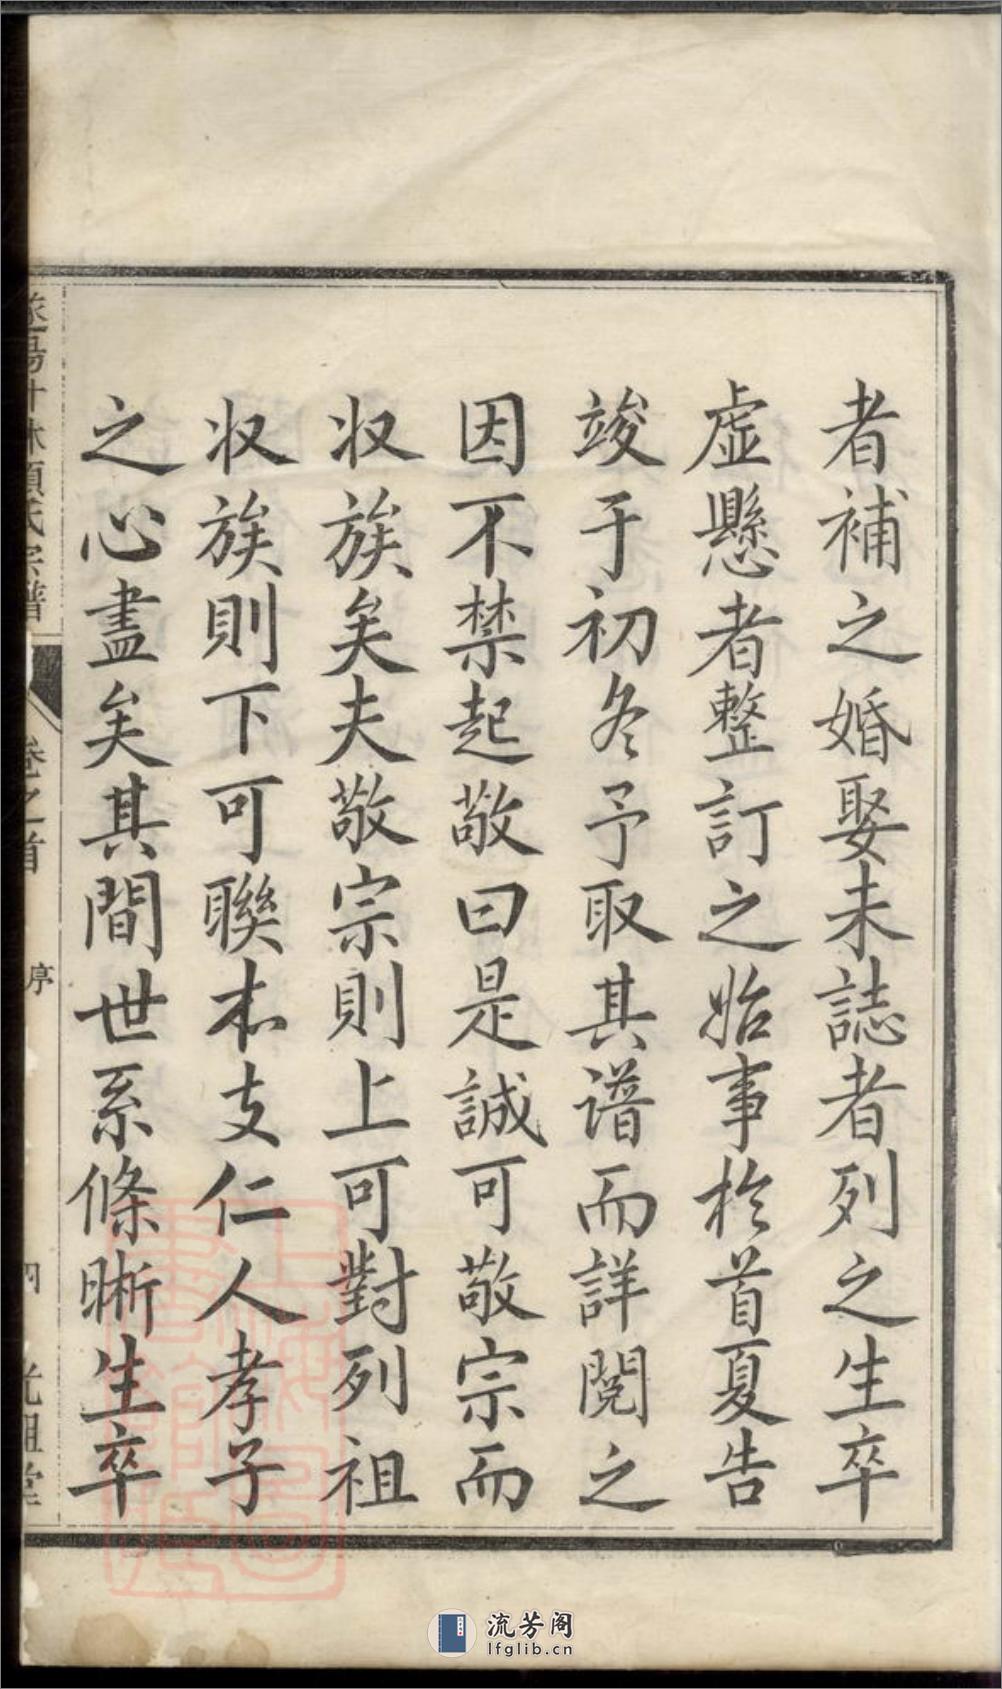 者補之婚娶未誌者列之生卒
虛懸者整訂之始事於首夏告
竣于初冬予取其谱而詳閱之
因不禁起敬曰是誠可敬宗而
収族矣夫敬宗則上可對列祖
収族則下可聯本支仁人孝子
之心盡矣其間世系條晰生卒
項氏宗譜
卷之首
序
四
光祖堂
流芳阁
lfglib.cn